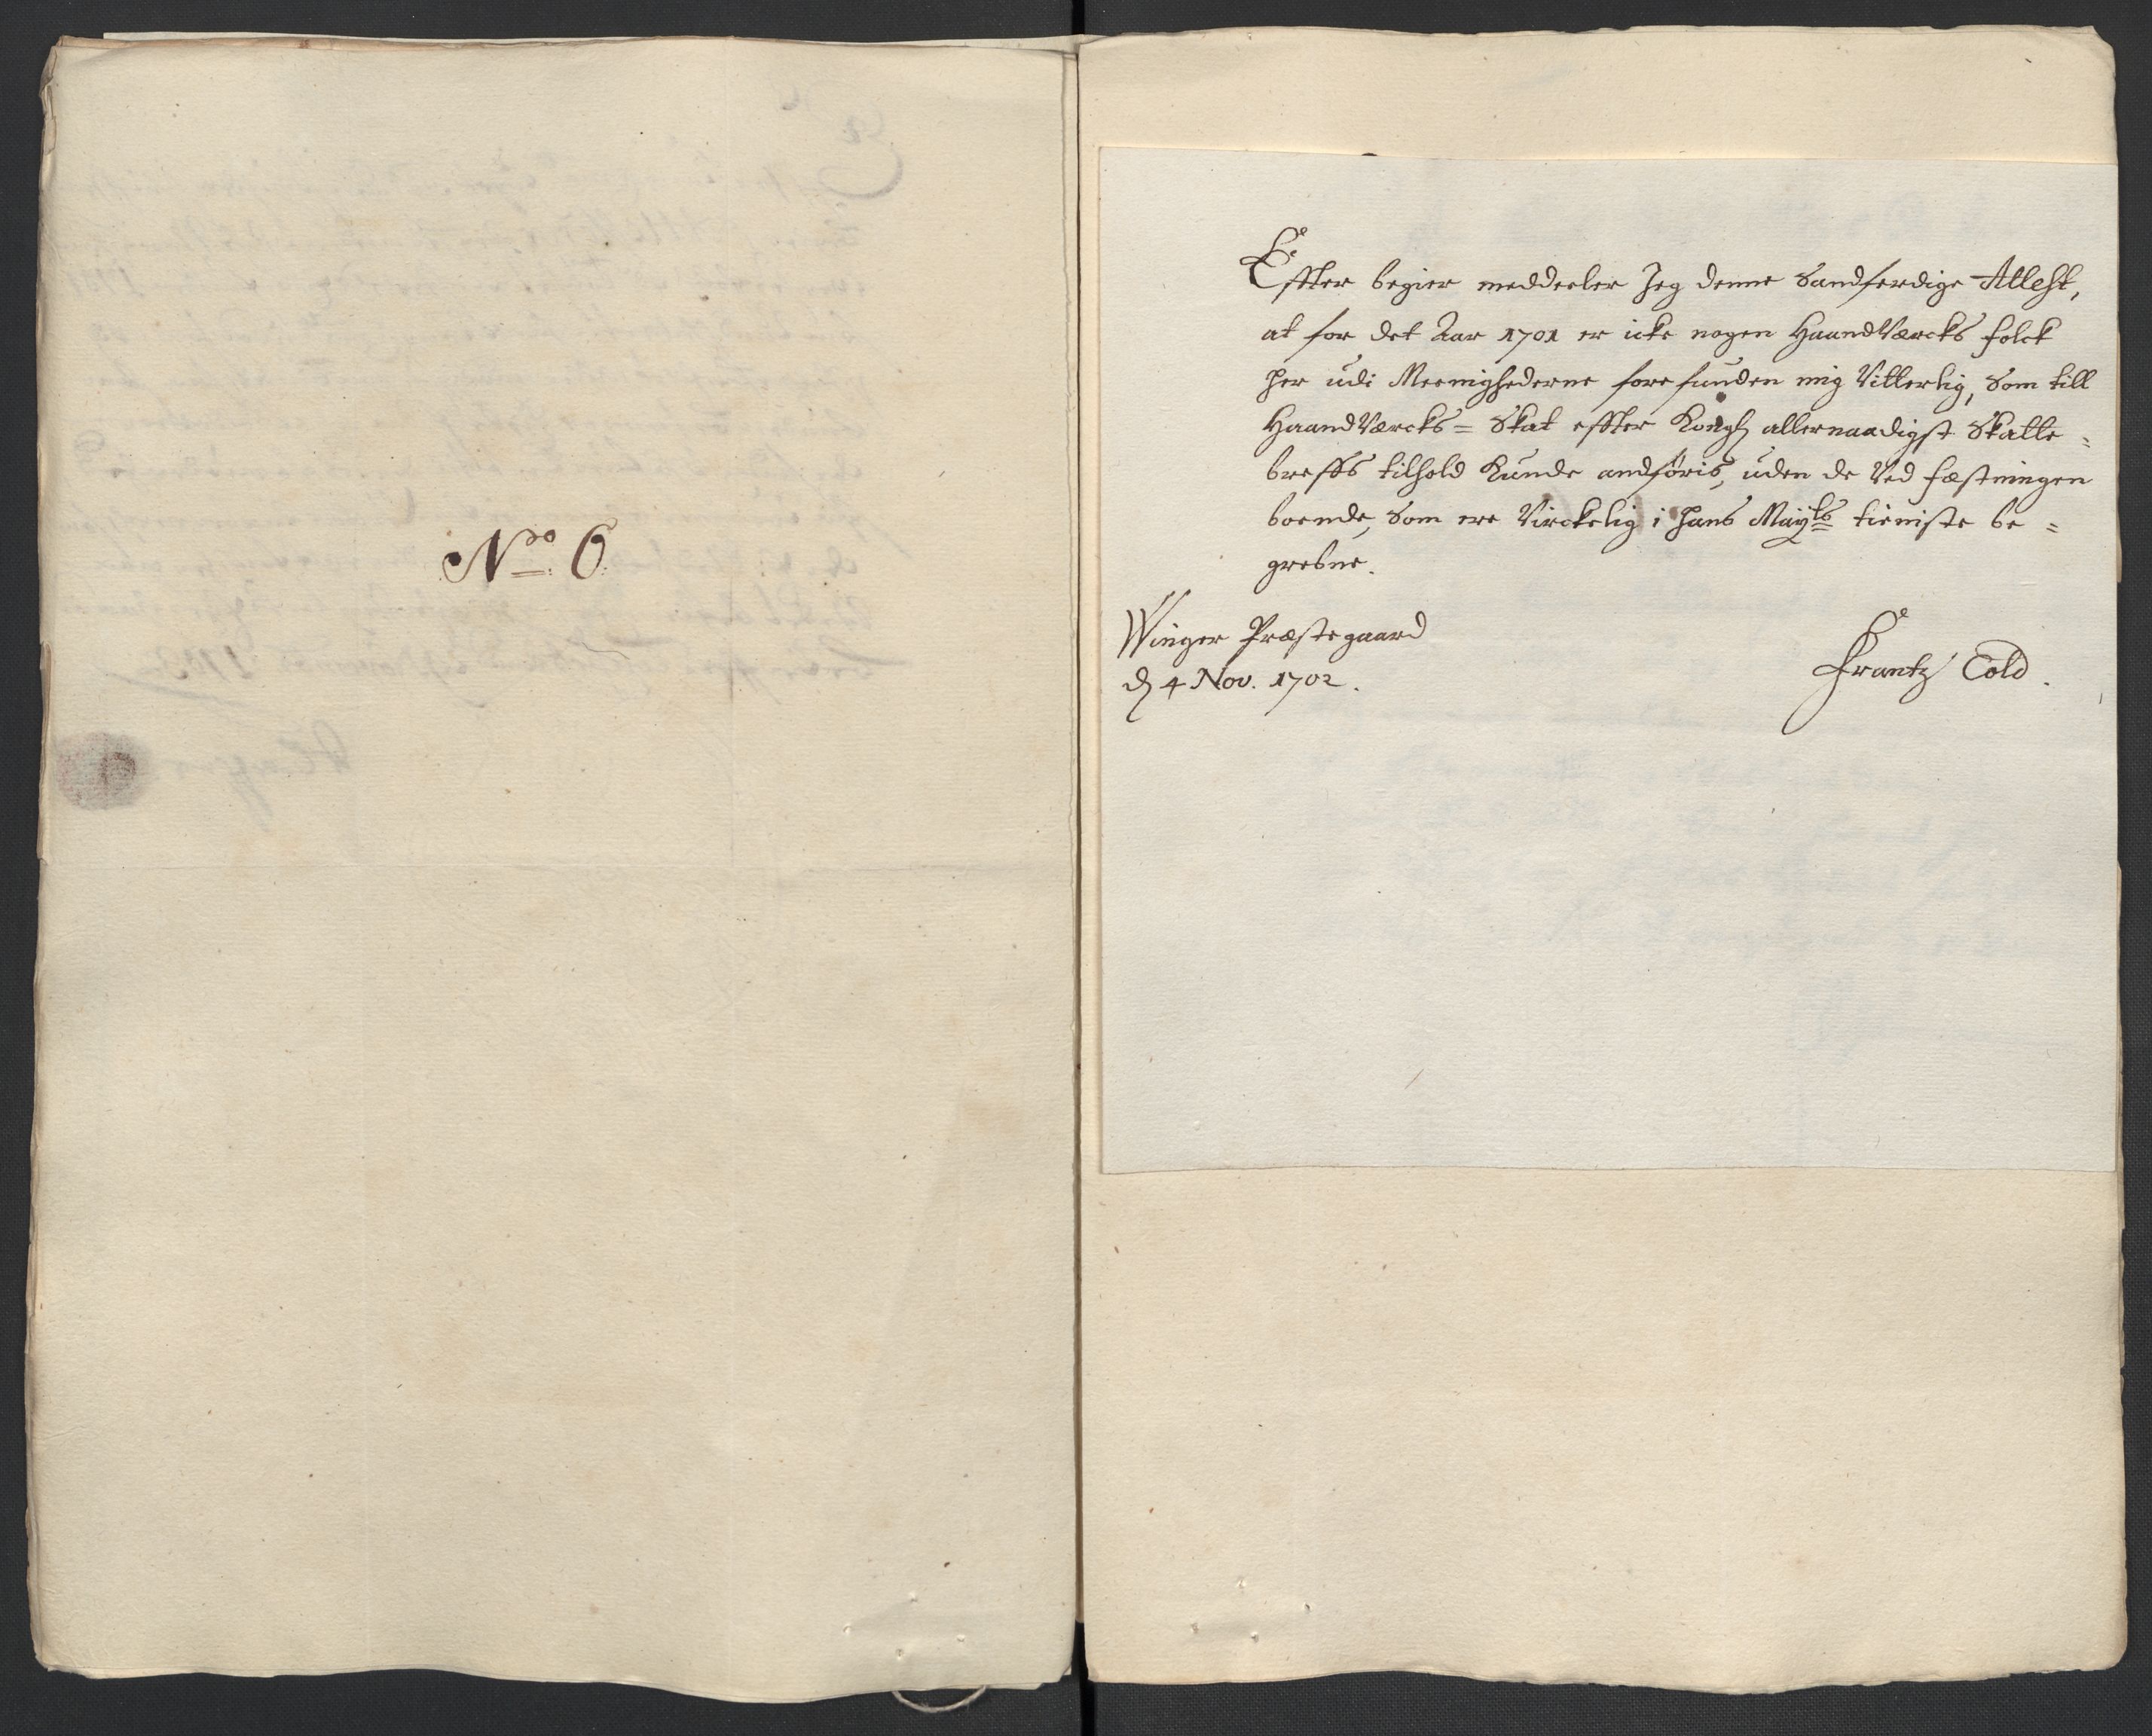 No. 6.
Effter begier meddeeler Jeg denne Sandferdige Attest,
at for det Aar 1701 er icke nogen Haandværcks folck
her udi Meenighederne forefunden mig Vitterlig, Som till
Haandværcks= Skat effter allernaadigst Skatte=
breffs tilhold kunde andføris, uden de ved Fæstningen
boende, Som ere Virckelig i hans Mayts tieniste be=
grebne.
Winger Præstegaard
d 4 Nov. 1702.
Frantz Told.